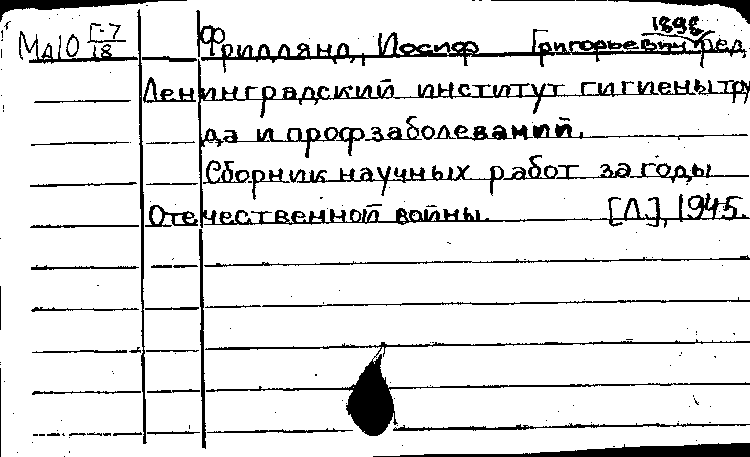 МД10 Г-7/18 Фридлянд, Иосиф Григорьевич, 1898 ред.
Ленинградский институт гигиены тру
да и профзаболеваний.
Сборник научных работ за годы
Отечественной войны. [Л.], 1945.